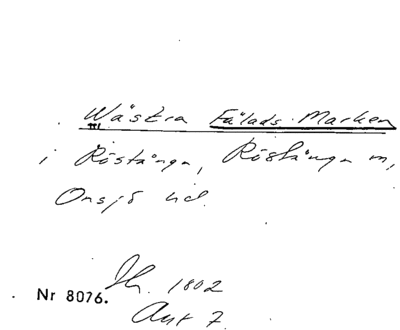 Wästra Fälads Marken
i Röstånga, Röstånga m,
Onsjö hd.
Nr 8076. Ih. 1802
Aukt 7